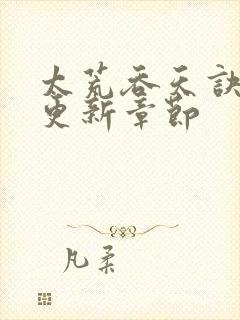 太荒吞天诀
更新章节
凡柔